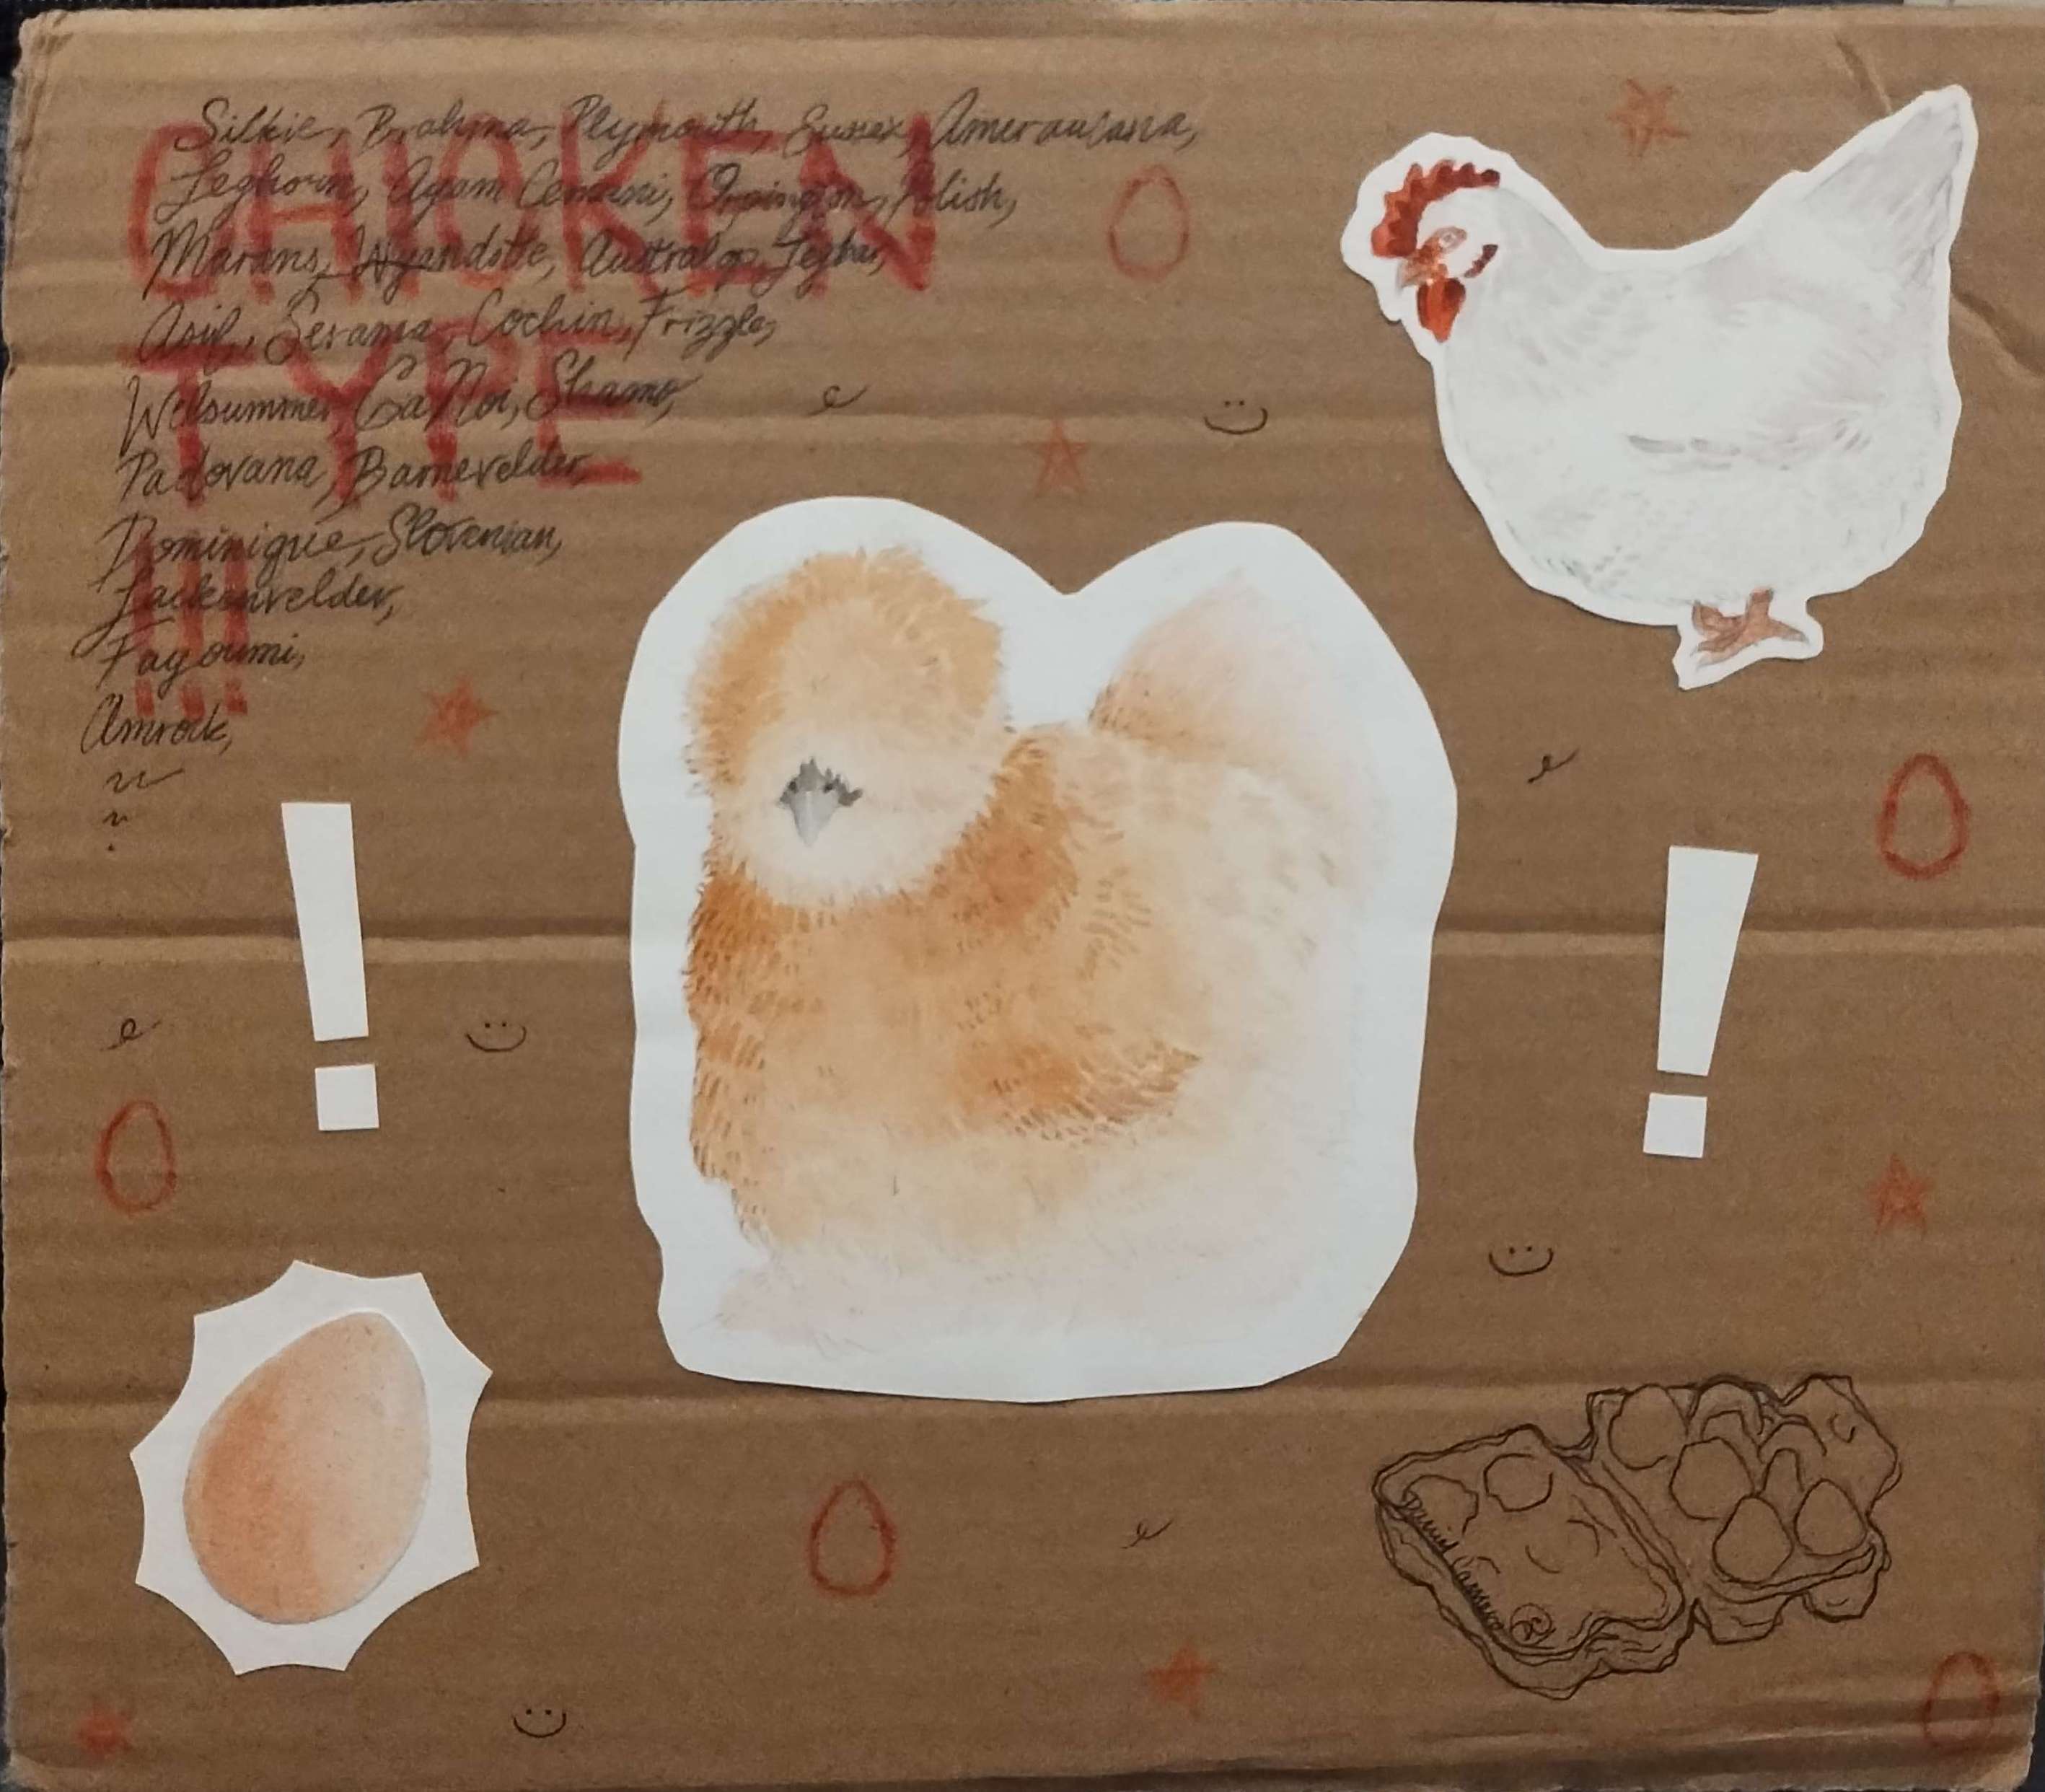 CHICKEN
TYPE
!!!
Silkie, Brahma, Plymouth, Sussex, Ameraucana,
Leghorn, Ayam Cemani, Orpington, Polish,
Marans, Wyandotte, Australop,
Asil, Serama, Cochin, Frizzle,
Welsummer, Ga Noi, Shamo,
Padovana, Barnevelder,
Dominique, Slovenian,
Lackenvelder,
Fayoumi,
Amrock,
!
!